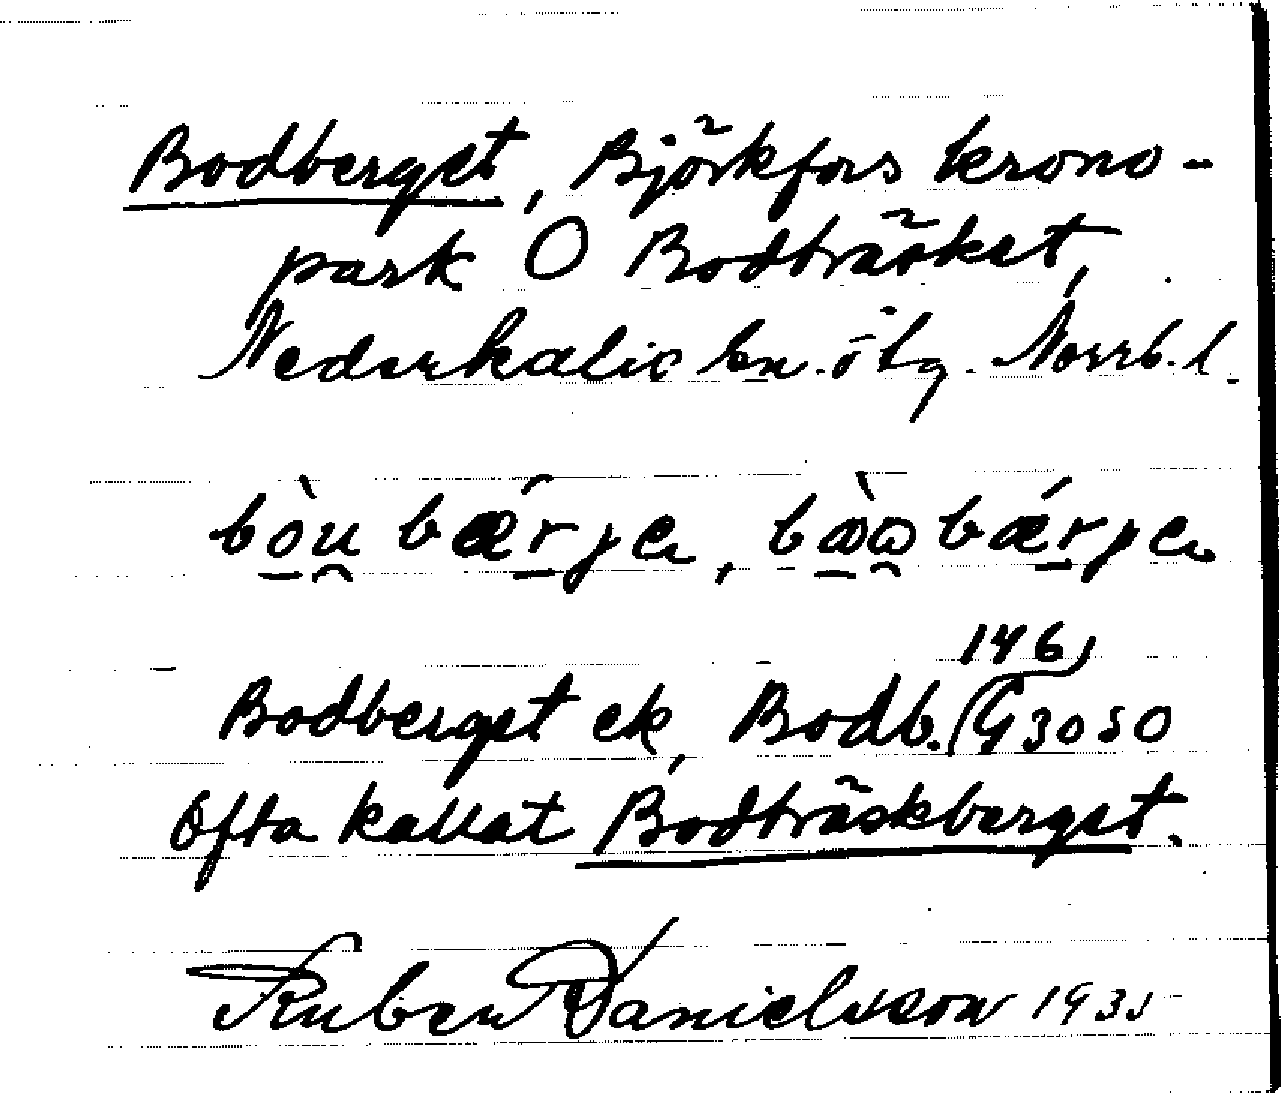 Bodberget, Björkfors krono-
park O Bodträsket,
Nederkalix sn. ö tg. Norrb. l.
bòu bǽrjen, bὼɷ bǽrjen
146
Bodberget ek, Bodb. G 3050
Ofta kallat Bodträskberget.
Ruben Danielsson 1931